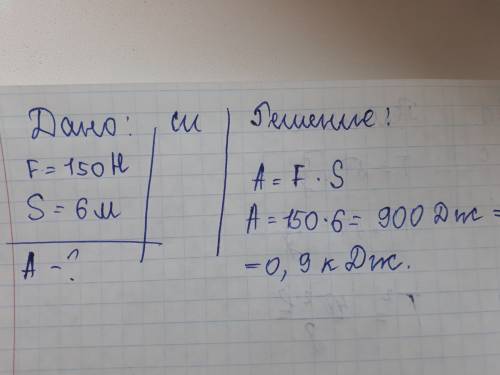 Дано:
F = 150 Н
S = 6 м
A - ?
си
Решение:
A = F · S
A = 150 · 6 = 900 Дж =
= 0,9 кДж.